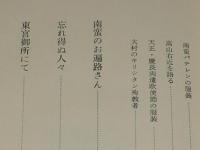 南蛮バテレンの服装
高山右近を語る
天正・慶長両遣欧使節の服装
大村のキリシタン殉教者
南蛮のお遍路さん
忘れ得ぬ人々
東宮御所にて